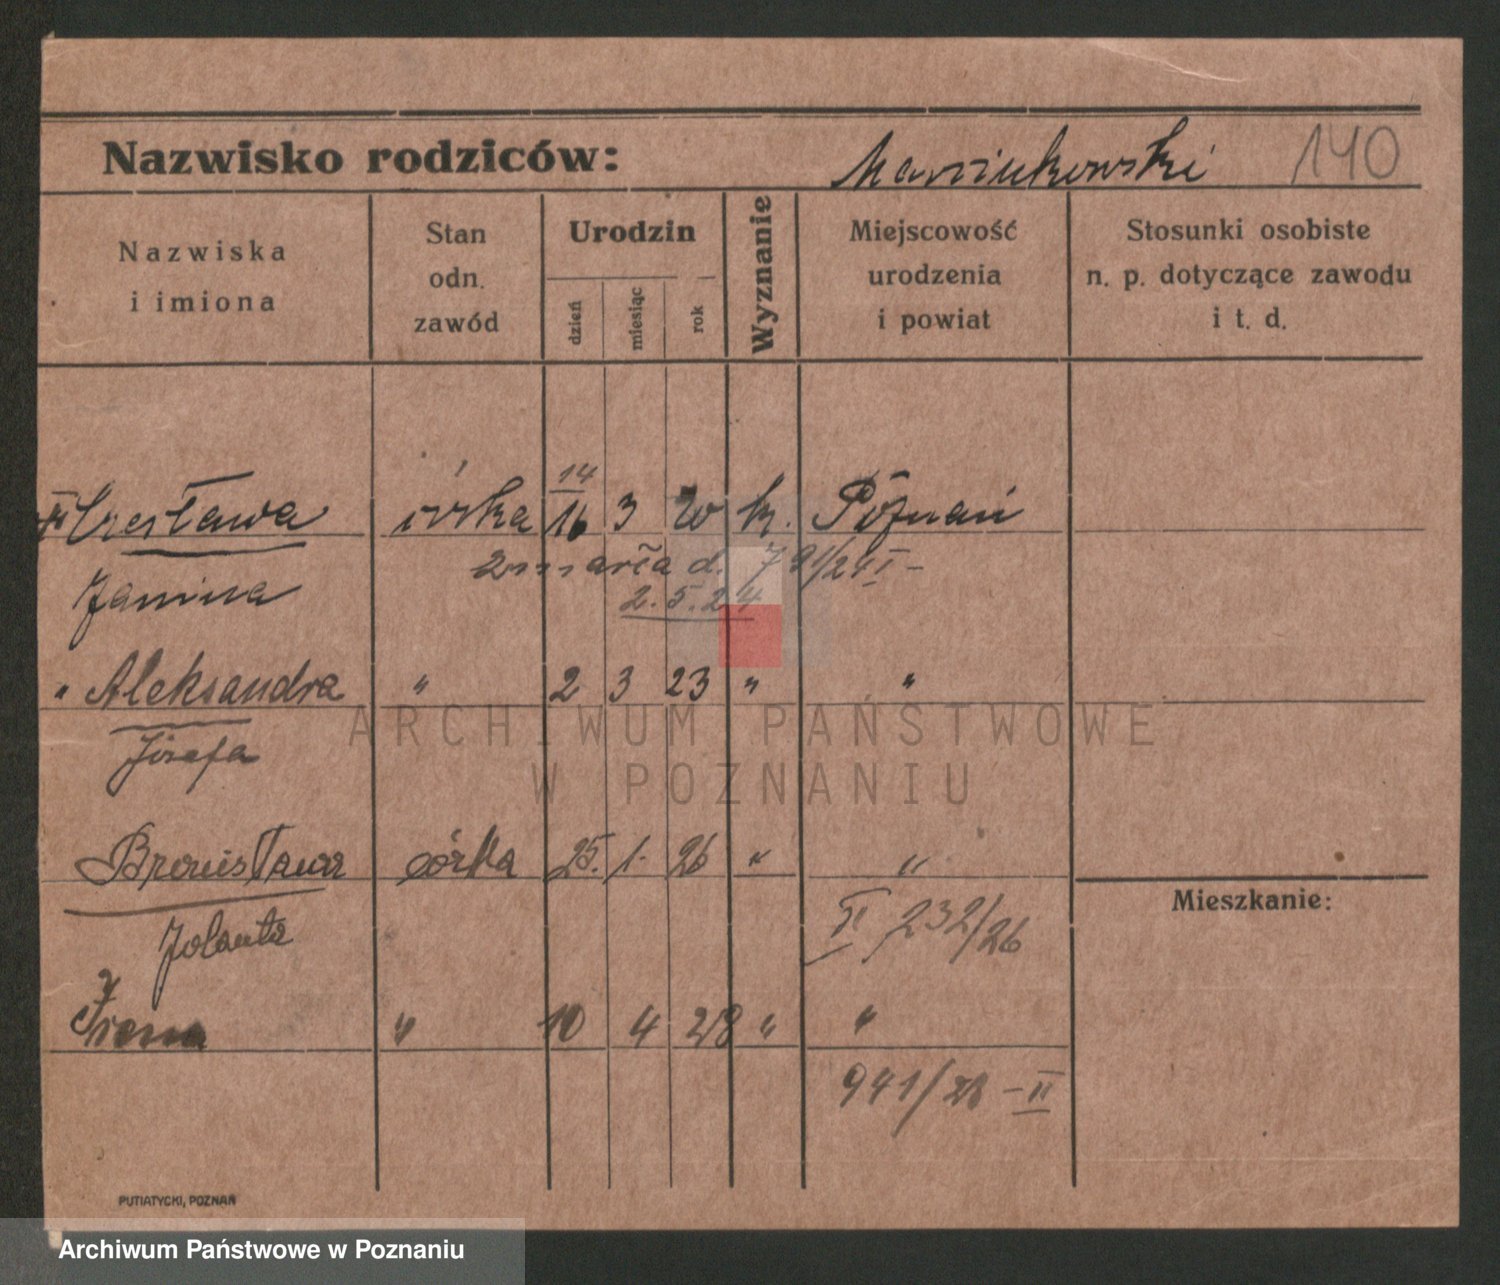 Nazwisko rodziców: Marciukowski 140
Nazwiska i imiona
Stan odn. zawód
Urodzin
dzień miesiąc rok
Wyznanie
Miejscowość urodzenia i powiat
Stosunki osobiste n. p. dotyczące zawodu i t. d.
14
Czesława córka 16 3 20 k. Poznań
Janina zmarła d.
2.5.24
" Aleksandra " 2 3 23 " "
Józefa
ARCHIWUM PAŃSTWOWE
W POZNANIU
Bronisława córka 25. 1. 26 " "
Mieszkanie:
Jolanta II 232/26
Irena " 10 4 28 " "
941/28 - II
PUTIATYCKI, POZNAŃ
Archiwum Państwowe w Poznaniu